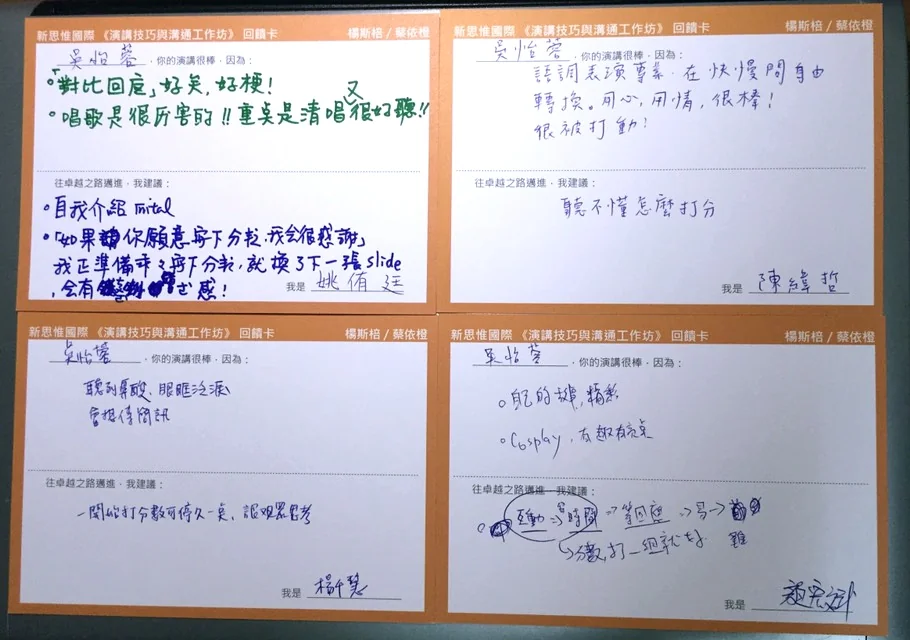 新思惟國際 《演講技巧與溝通工作坊》 回饋卡 楊斯棓 / 蔡依橙
吳怡蓉 , 你的演講很棒, 因為:
「對比回應」好笑, 好梗!
唱歌是很厉害的!! 重點是清唱又很好聽!!
往卓越之路邁進, 我建議:
自我介紹
「如果你願意寫下分數, 我会很感謝」
我正準備乖乖寫下分數, 就換了下一張 slide
, 会有 感!
我是 姚侑廷
新思惟國際 《演講技巧與溝通工作坊》 回饋卡 楊斯棓 / 蔡依橙
吳怡蓉 , 你的演講很棒, 因為:
語調表演專業. 在快慢間自由
轉換。用心, 用情, 很棒!
很被打動!
往卓越之路邁進, 我建議:
聽不懂怎麼打分
我是 陳緯哲
新思惟國際 《演講技巧與溝通工作坊》 回饋卡 楊斯棓 / 蔡依橙
吳怡蓉 , 你的演講很棒, 因為:
聽到鼻酸、眼眶泛淚
會想傳簡訊
往卓越之路邁進, 我建議:
一開始打分數可停久一點, 讓觀眾思考
我是 楊千慧
新思惟國際 《演講技巧與溝通工作坊》 回饋卡 楊斯棓 / 蔡依橙
吳怡蓉 , 你的演講很棒, 因為:
自己的故事, 精彩
Cosplay, 有趣有亮點
往卓越之路邁進, 我建議:
互動 → 時間 → 等回應 → 易 → 難
分數, 打一組就好
我是